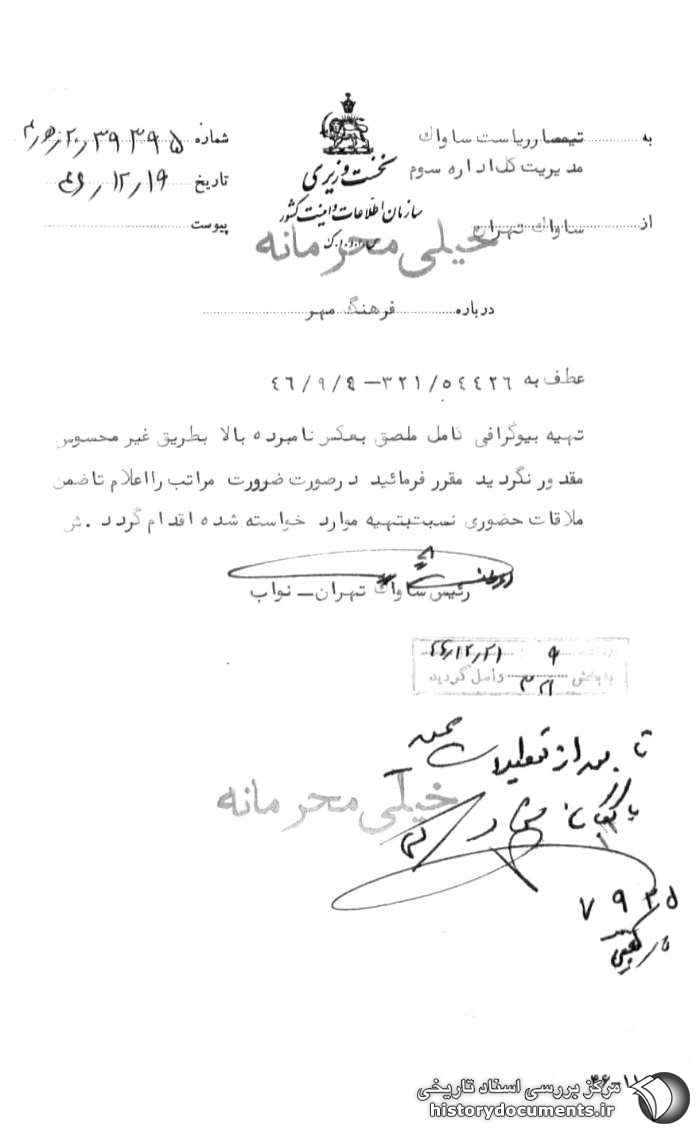 به تیمسار ریاست ساواک
مدیریت کل اداره سوم
از ساواک تهران
نخست وزیری
سازمان اطلاعات و امنیت کشور
س.ا.و.ا.ک
شماره ۳۹۳۹۵
تاریخ ۴۶/۱۲/۱۹
پیوست
خیلی محرمانه
درباره فرهنگ مهر
عطف به ۳۲۱/۵٤٤۲٦ – ٤٦/۹/٤
تهیه بیوگرافی کامل ملصق بعکس نامبرده بالا بطریق غیر محسوس
مقدور نگردید مقرر فرمائید درصورت ضرورت مراتب را اعلام تا ضمن
ملاقات حضوری نسبت بتهیه موارد خواسته شده اقدام گردد .ش
رئیس ساواک تهران – نواب
۹ ٤٦/۱۲/۲۱
به بخش ۳۲۱ واصل گردید
تا بعد از تعطیلات
خیلی محرمانه
مرکز بررسی اسناد تاریخی
historydocuments.ir